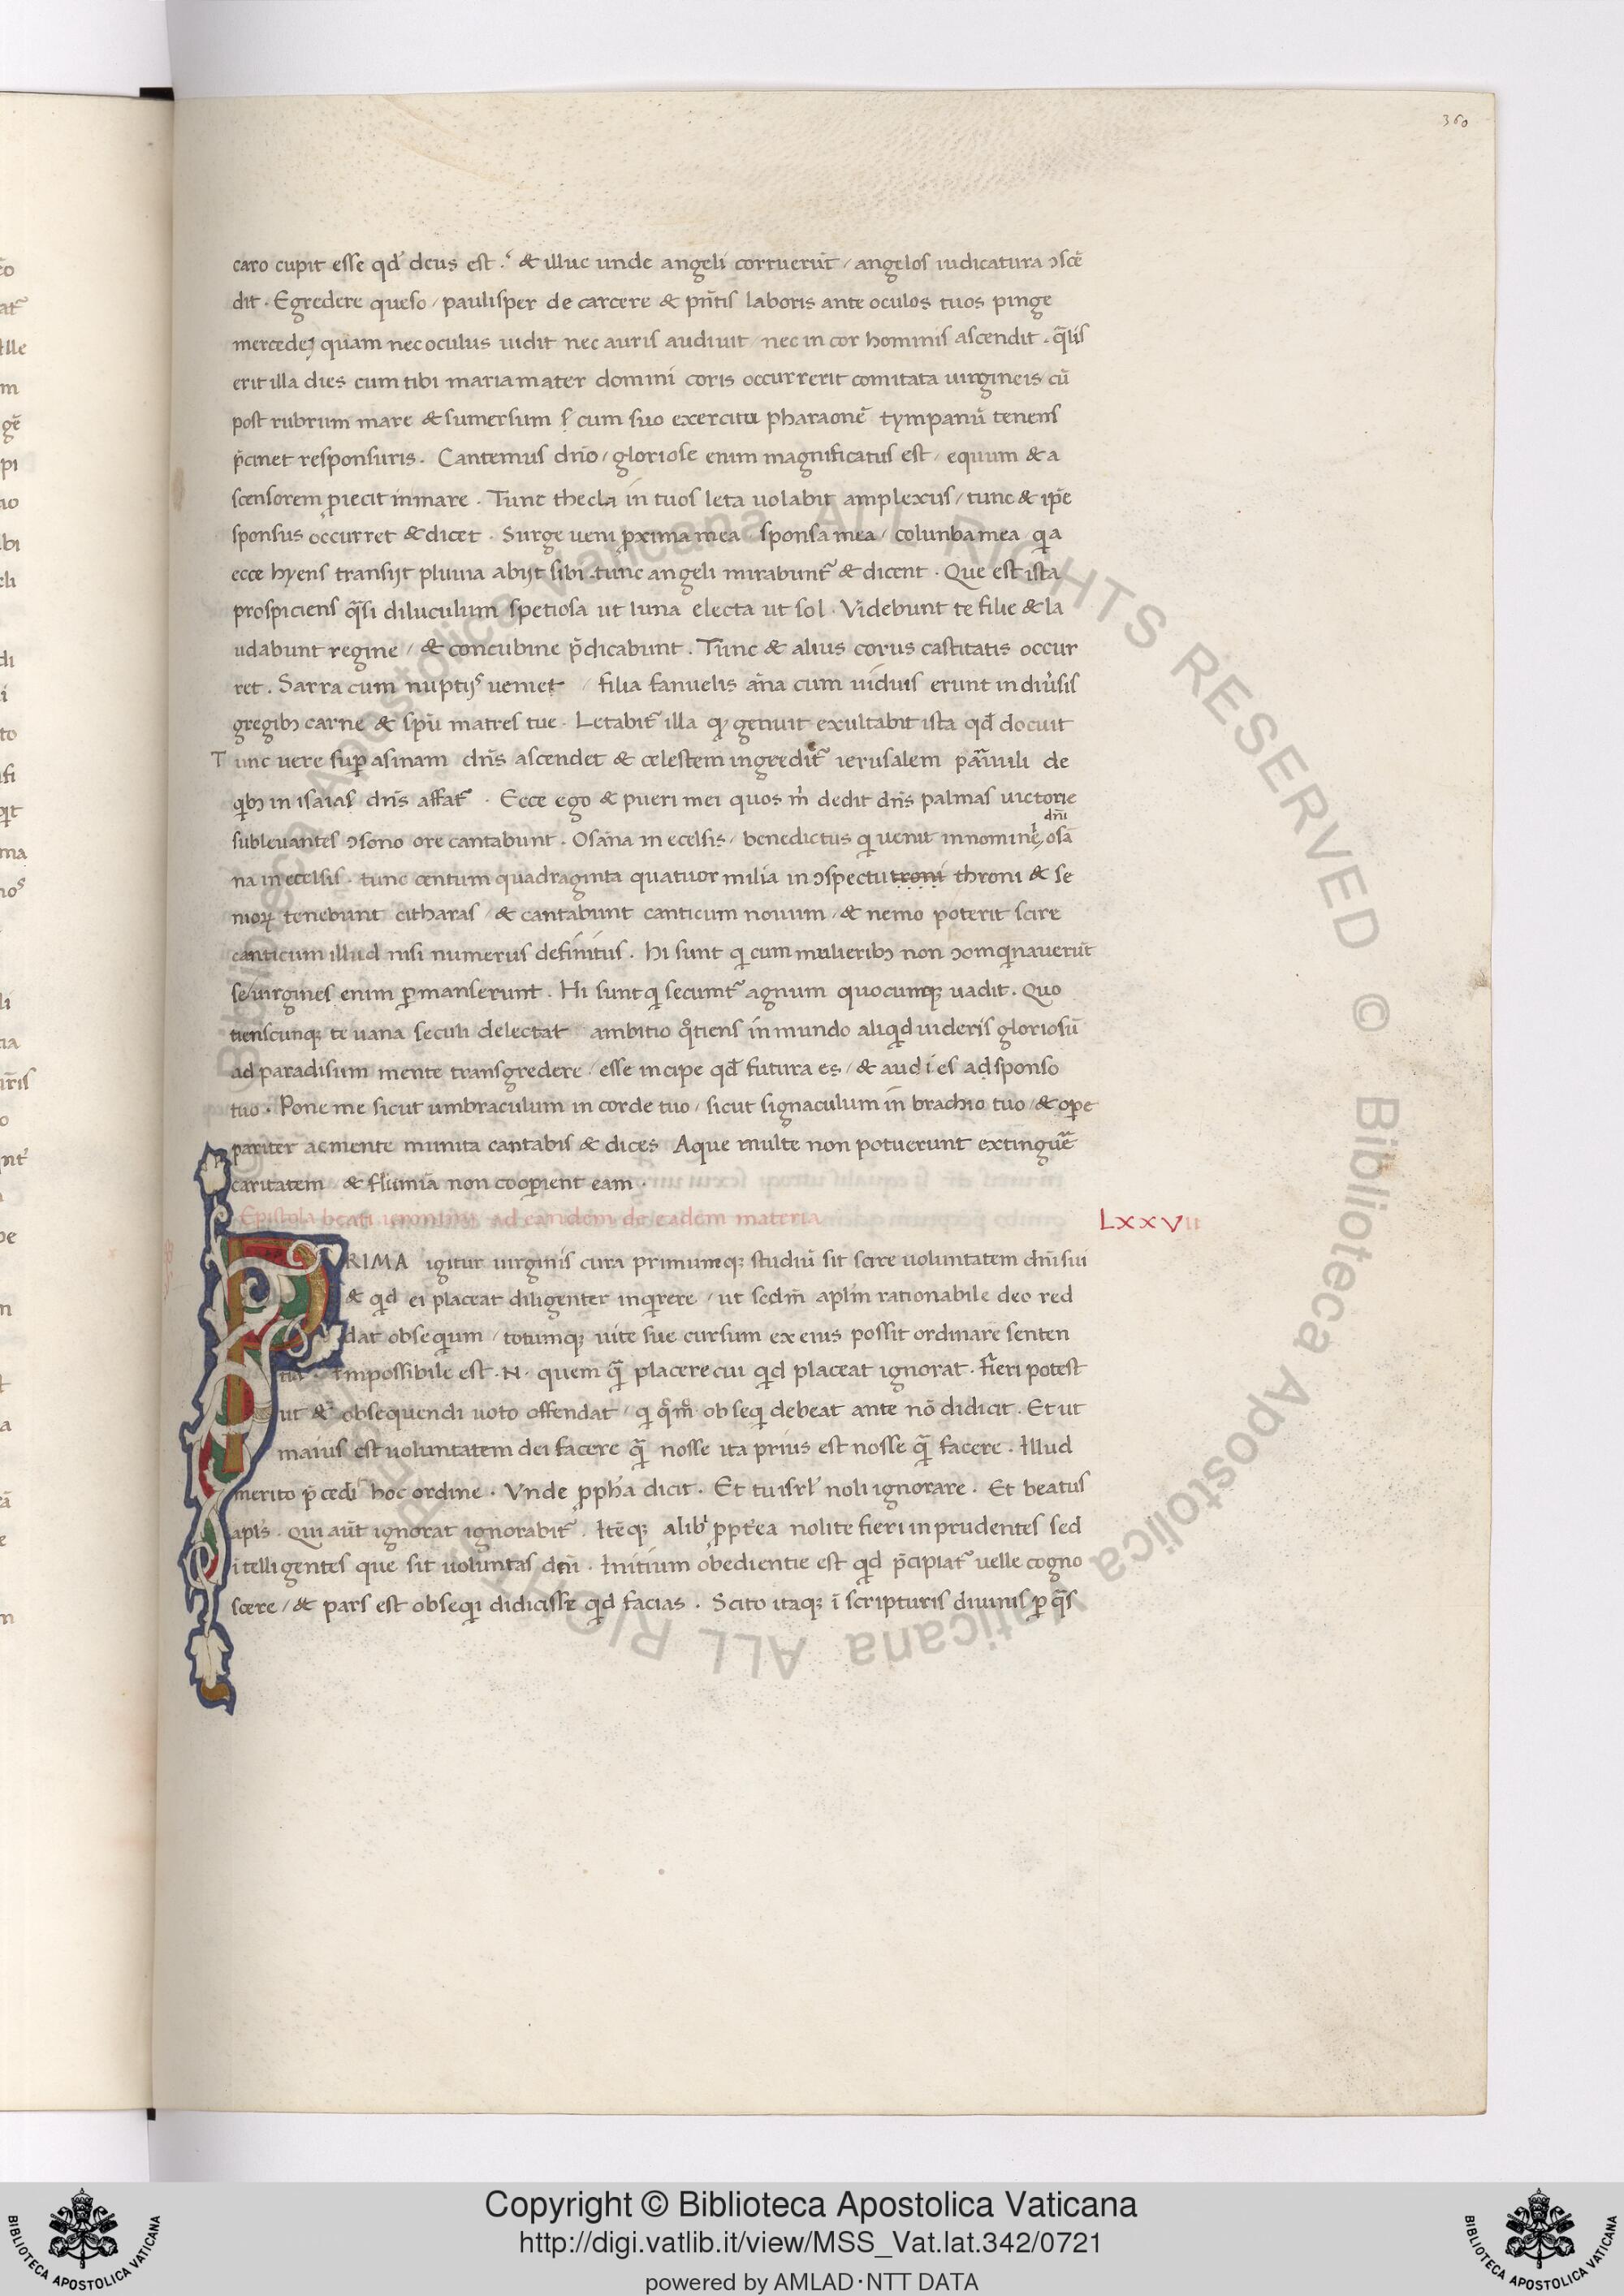 360
caro cupit esse qd̛ deus est .ˢ & illuc unde angeli corruerūt / angelos iudicatura ↄscē
dit . Egredere queso / paulisper de carcere & pn̄tis laboris ante oculos tuos pinge
mercedeȝ quam nec oculus uidit nec auris audiuit / nec in cor hominis ascendit . q̄lis
erit illa dies cum tibi maria mater domini coris occurrerit comitata uirgineis cū
post rubrum mare & sumersum cum suo exercitu pharaonē tympanū tenens
p̄cinet responsuris . Cantemus dn̄o / gloriose enim magnificatus est / equum & a
scensorem ꝓiecit in mare . Tunc thecla in tuos leta uolabit amplexus / tunc & ip̄e
sponsus occurret & dicet . Surge ueni ꝓxima mea sponsa mea / colunba mea qa
ecce hyens transijt pluuia abijt sibi . tunc angeli mirabunt᷑ & dicent . Que est ista
prospiciens q̄si diluculum spetiosa ut luna electa ut sol . Videbunt te filie & la
udabunt regine / & concubine p̄dicabunt . Tunc & alius corus castitatis occur
ret . Sarra cum nuptijˢ ueniet / filia fanuelis an̄a cum uiduis erunt in diu̓sis
gregibꝫ carne & sp̄u matres tue . Letabit᷑ illa q̨ genuit exultabit ista qd̄ docuit
Tunc uere suꝑ asinam dn̄s ascendet & celestem ingredit᷑ ierusalem paruuli de
qibꝫ in isaias dn̄s affat᷑ . Ecce ego & pueri mei quos m̓ dedit dn̄s palmas uictorie
subleuantes ↄsono ore cantabunt . Osan̄a in ecelsis / benedictus qi uenit in nomine dn̄i osā
na in ecelsis . tunc centum quadraginta quatuor milia in ↄspectu troni throni & se
nioꝝ tenebunt citharas / & cantabunt canticum nouum / & nemo poterit scire
canticum illud nisi numerus definitus . Hi sunt qi cum mulieribꝫ non ↄomqinauerūt
se / uirgines enim ꝑmanserunt . Hi sunt qi secumt᷑ agnum quocumqꝫ uadit . Quo
tienscunqꝫ te uana seculi delectat ambitio qͦtiens in mundo aliqid uideris gloriosū
ad paradisum mente transgredere / esse incipe qd̄ futura es / & audies ad sponso
tuo . Pone me sicut umbraculum in corde tuo / sicut signaculum in brachio tuo / & oꝑe
pariter ac mente munita cantabis & dices Aque multe non potuerunt extinguē
caritatem & flumīa non cooꝑient eam .
Epistola beati ieronimi ad eandem de eadem materia LxxVii
PRIMA igitur uirginis cura primumqꝫ studiū sit scire uoluntatem dn̄i sui
& qid ei placeat diligenter inqirere / ut secdm̄ aplm̄ rationabile deo red
dat obseqium / totumqꝫ uite sue cursum ex eius possit ordinare senten
tia . Impossibile est . N . quem qā placere cui qid placeat ignorat . Fieri potest
ut & obsequendi uoto offendat / qi qͣmͦ obseqi debeat ante nō didicit . Et ut
maius est uoluntatem dei facere qā nosse ita prius est nosse qā facere . Illud
merito p̄cedit hoc ordine . Vnde ꝓpha̓ dicit . Et tu isrl̓ noli ignorare . Et beatus
apl̓s . Qui aūt ignorat ignorabit᷑ . Itēqꝫ alibi ꝓpt̓ea nolite fieri inprudentes sed
itelligentes que sit uoluntas dn̄i . Initium obedientie est qid p̄cipiat᷑ uelle cogno
scere / & pars est obseqi didicisse qid facias . Scito itaqꝫ ī scripturis diuinis ꝑ q̄s
Copyright © Biblioteca Apostolica Vaticana
http://digi.vatlib.it/view/MSS_Vat.lat.342/0721
powered by AMLAD·NTT DATA